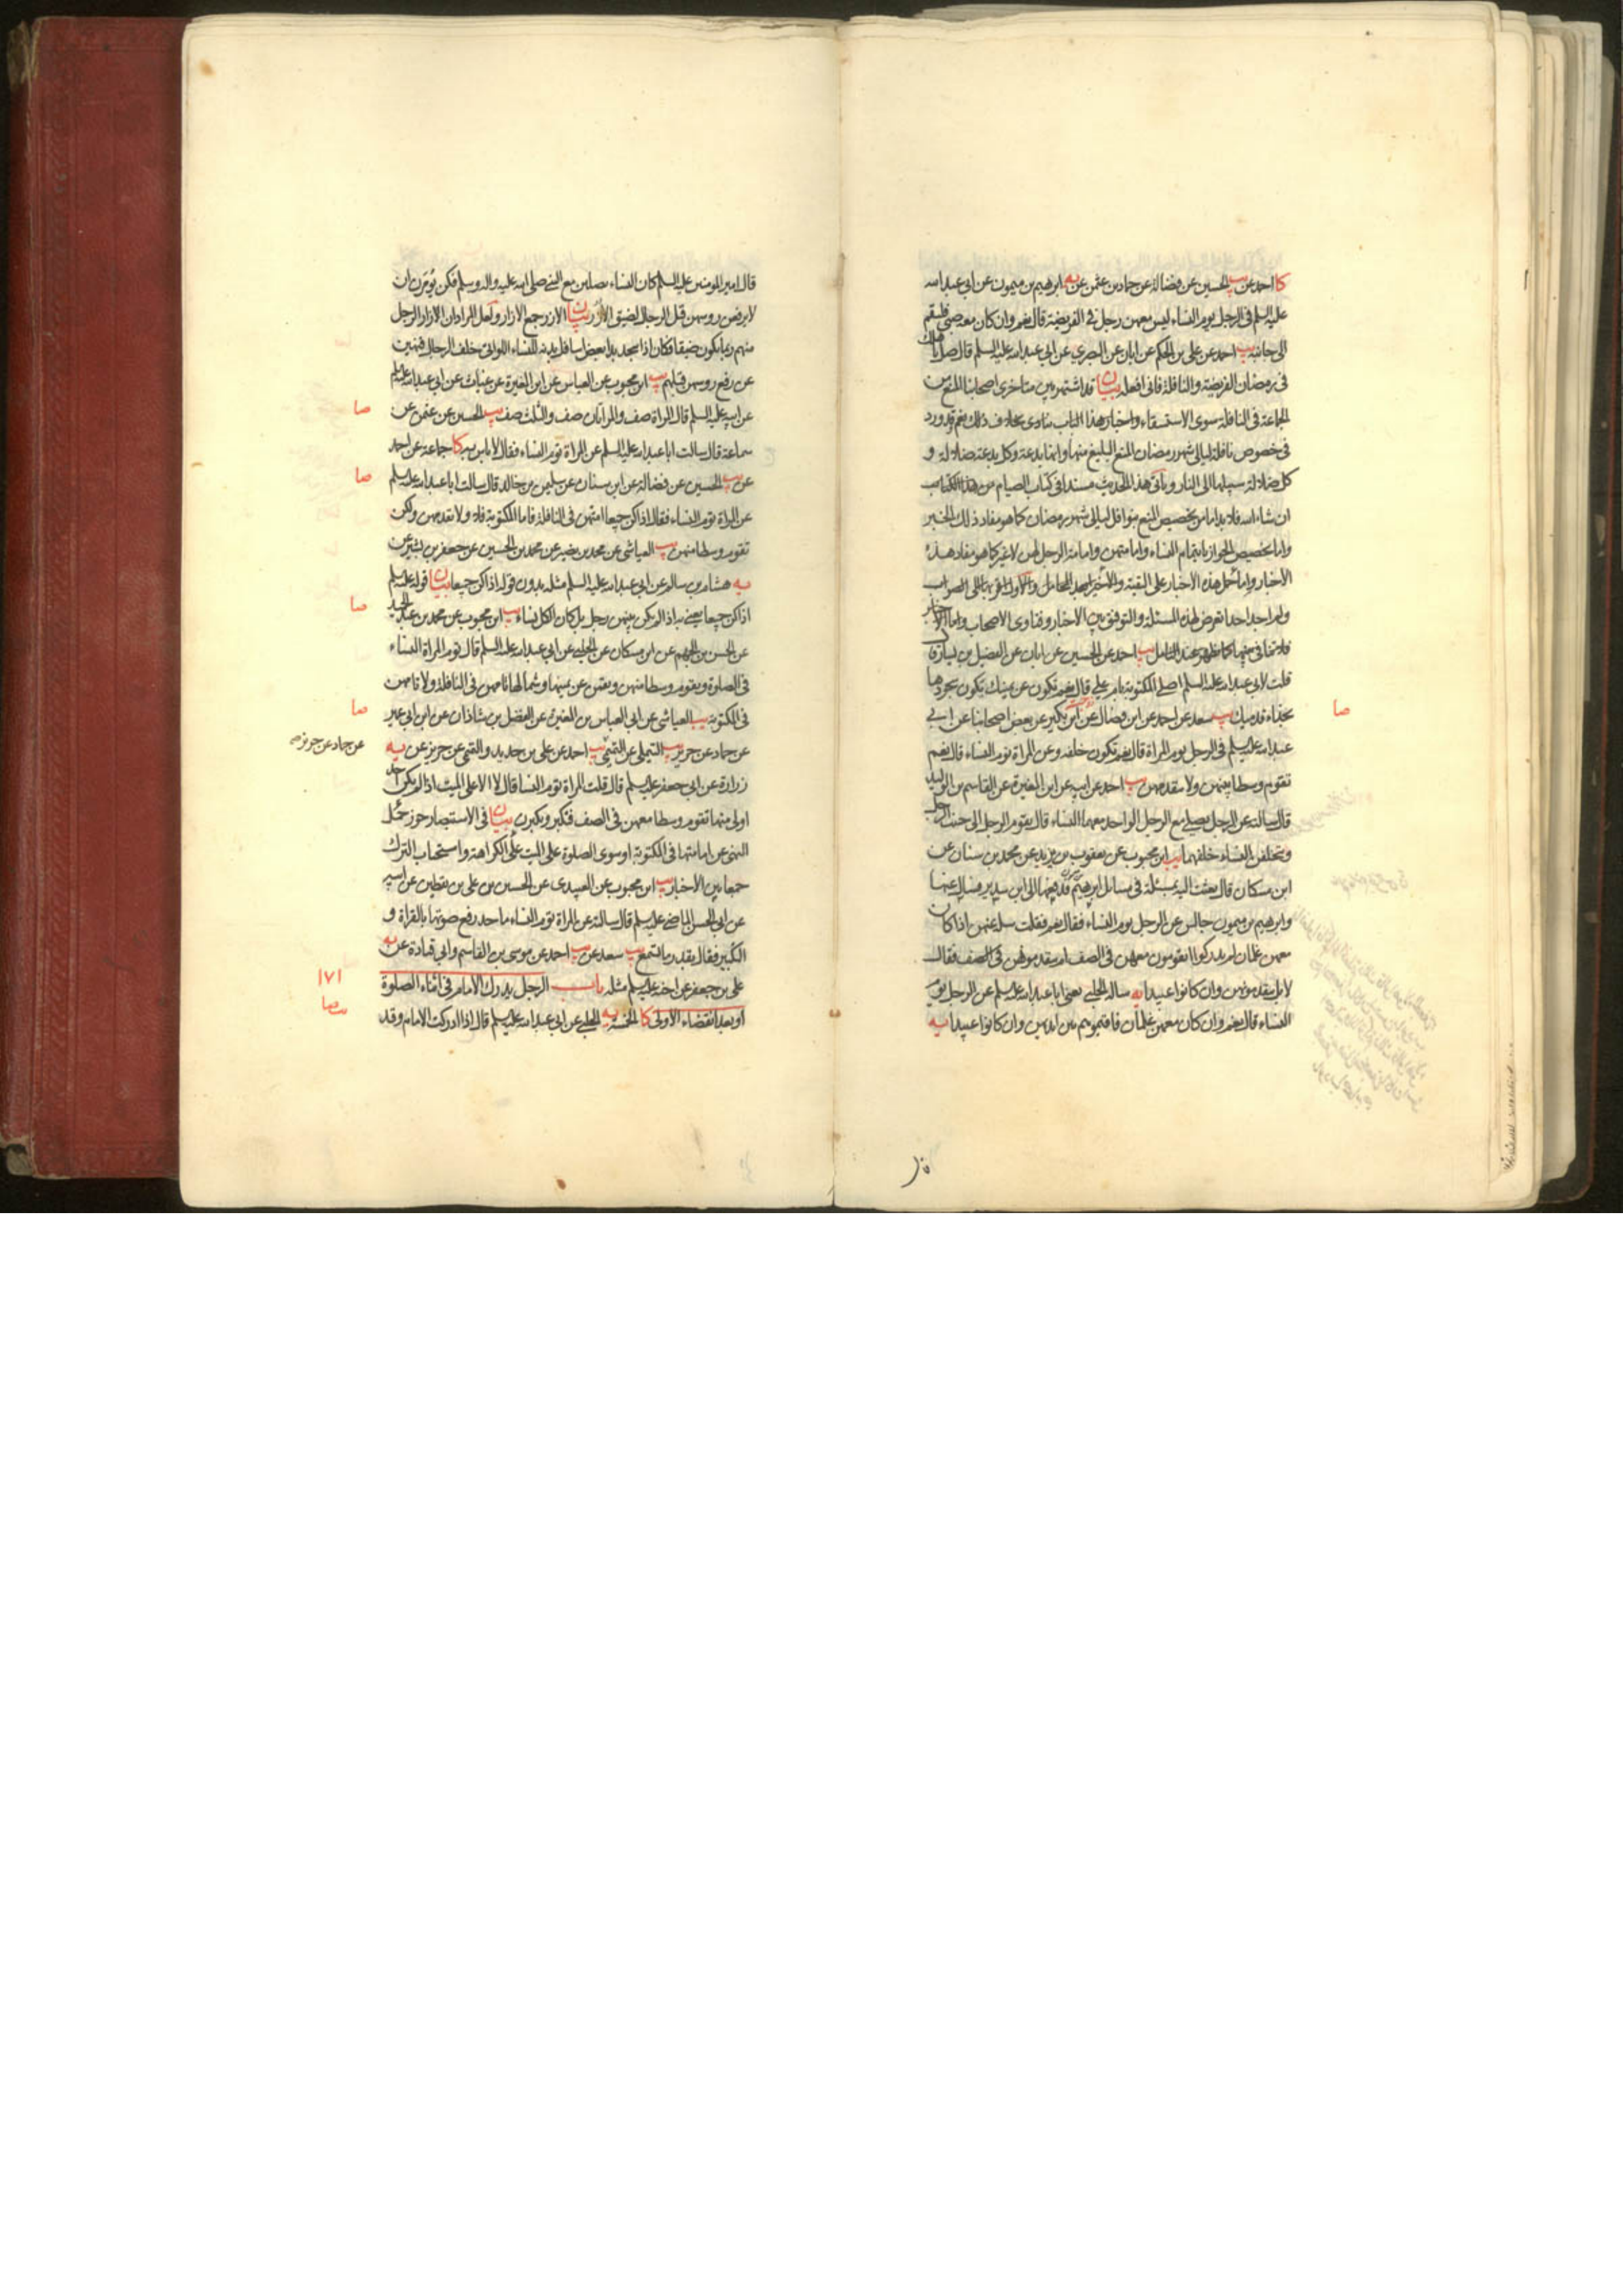 كا احمد عن يب الحسين عن فضالة عن حماد بن عثمن عن يه ابرهيم بن ميمون عن ابي عبد الله
عليه السلم في الرجل يوم النساء ليس معهن رجل في الفريضة قال نعم وان كان معه صبي فليقم
الى جانبه يب احمد عن علي بن الحكم عن ابان عن البصري عن ابي عبد الله عليه السلم قال صل باهلك
في رمضان الفريضة والنافلة فاني افعله بيان قد اشتهر بين متاخرى اصحابنا المنع من
الجماعة في النافلة سوى الاستسقاء واخبار هذا الباب ينادى بخلاف ذلك نعم قد ورد
في خصوص نافلة ليالي شهر رمضان المنع البليغ منها وانها بدعة وكل بدعة ضلالة و
كل ضلالة سبيلها الى النار وياتي هذا الحديث مسندا في كتاب الصيام من هذا الكتاب
ان شاء الله فلا بد اما من تخصيص المنع بنوافل ليالي شهر رمضان كما هو مفاد ذلك الخبر
واما تخصيص الجواز بايتمام النساء وامامتهن وامامة الرجل لهن لا غير كما هو مفاد هذه
الاخبار واما حمل هذه الاخبار على التقية والاخير ابعد المحامل والاول اقربها الى الصواب
ولم اجد احدا تعرض لهذه المسئلة والتوفيق بين الاخبار وفتاوى الاصحاب واما الاخبار
فلا تنافي بينها كما ظهر عند التامل يب احمد عن الحسين عن ابان عن الفضيل بن يسار قال
قلت لابي عبد الله عليه السلم اصلي المكتوبة بام علي قال نعم تكون عن يمينك يكون سجودها
بحذاء قدميك يب سعد عن احمد عن ابن فضال عن ابن بكير عن بعض اصحابنا عن ابي
صا
عبد الله عليه السلم في الرجل يوم المراة قال نعم تكون خلفه وعن المراة توم النساء قال نعم
تقوم وسطا بينهن ولا تتقدمهن يب احمد عن ابيه عن ابن المغيرة عن القاسم بن الوليد
قال سالته عن الرجل يصلي مع الرجل الواحد معهما النساء قال يقوم الرجل الى جنب الرجل
ويتخلفن النساء خلفهما يب ابن محبوب عن يعقوب بن يزيد عن محمد بن سنان عن
ابن مسكان قال بعثت اليه بمسئلة في مسائل ابرهيم فدفعها الى ابن سدير فسال عنها
وابرهيم بن ميمون جالس عن الرجل يوم النساء فقال نعم فقلت سله عنهن اذا كان
معهن غلمان لم يدركوا ايقومون معهن في الصف ام يتقدمونهن في الصف فقال
لا بل يتقدمونهن وان كانوا عبيدا يه ساله الحلبي يعني ابا عبد الله عليه السلم عن الرجل يوم
النساء قال نعم وان كان معهن غلمان فاقيموهم بين ايديهن وان كانوا عبيدا يه
قال امير المومنين عليه السلم كان النساء يصلين مع النبي صلى الله عليه واله وسلم فكن يؤمرن ان
لا يرفعن روسهن قبل الرجال لضيق الازر بيان الازر جمع الازار ولعل المراد ان الازار الرجل
منهم ربما يكون ضيقا فكان اذا سجد بدا بعض اسافل بدنه للنساء اللواتي خلف الرجال فنهين
عن رفع روسهن قبلهم يب ابن محبوب عن العباس عن ابن المغيرة عن غياث عن ابي عبد الله عليه السلم
عن ابيه عليه السلم قال المراة صف والمراتان صف والثلث صف يب الحسين عن عثمن عن
صا
سماعة قال سالت ابا عبد الله عليه السلم عن المراة توم النساء فقال لا باس به كا جماعة عن احمد
عن يب الحسين عن فضالة عن ابن سنان عن سليمن بن خالد قال سالت ابا عبد الله عليه السلم
صا
عن المراة توم النساء فقال اذا كن جميعا امتهن في النافلة فاما المكتوبة فلا ولا تتقدمهن ولكن
تقوم وسطا منهن يب العياشي عن محمد بن نصير عن محمد بن الحسين عن جعفر بن بشير عن
يه هشام بن سالم عن ابي عبد الله عليه السلم مثله بدون قوله اذا كن جميعا بيان قوله عليه السلم
اذا كن جميعا يعني به اذا لم يكن بينهن رجل بل كان الكل نساء يب ابن محبوب عن محمد بن عبد الحميد
صا
عن الحسن بن الجهم عن ابن مسكان عن الحلبي عن ابي عبد الله عليه السلم قال توم المراة النساء
في الصلوة وتقوم وسطا منهن ويقمن عن يمينها وشمالها تامهن في النافلة ولا تامهن
في المكتوبة يب العياشي عن ابي العباس بن المغيرة عن الفضل بن شاذان عن ابن ابي عمير
صا
عن حماد عن حريز يب التيملي عن التميمي يب احمد عن علي بن حديد والتميمي عن حريز عن يه
عن حماد عن حريز صح
زرارة عن ابي جعفر عليه السلم قال قلت المراة توم النسا قال لا الا على الميت اذا لم يكن احد
اولى منها تقوم وسطا معهن في الصف فتكبر ويكبرن بيان في الاستبصار جوز حمل
النهي عن امامتها في المكتوبة او سوى الصلوة على الميت على الكراهة واستحباب الترك
جمعا بين الاخبار يب ابن محبوب عن العبيدى عن الحسين بن علي بن يقطين عن ابيه
عن ابي الحسن الماضي عليه السلم قال سالته عن المراة توم النساء ما حد رفع صوتها بالقراة و
التكبير فقال بقدر ما تسمع يب سعد عن يب احمد عن موسى بن القاسم وابي قتادة عن يه
علي بن جعفر عن اخيه عليه السلم مثله باب الرجل يدرك الامام في اثناء الصلوة
١٧١
او بعد انقضاء الاولى كا الخمسة يه الحلبي عن ابي عبد الله عليه السلم قال اذا ادركت الامام وقد